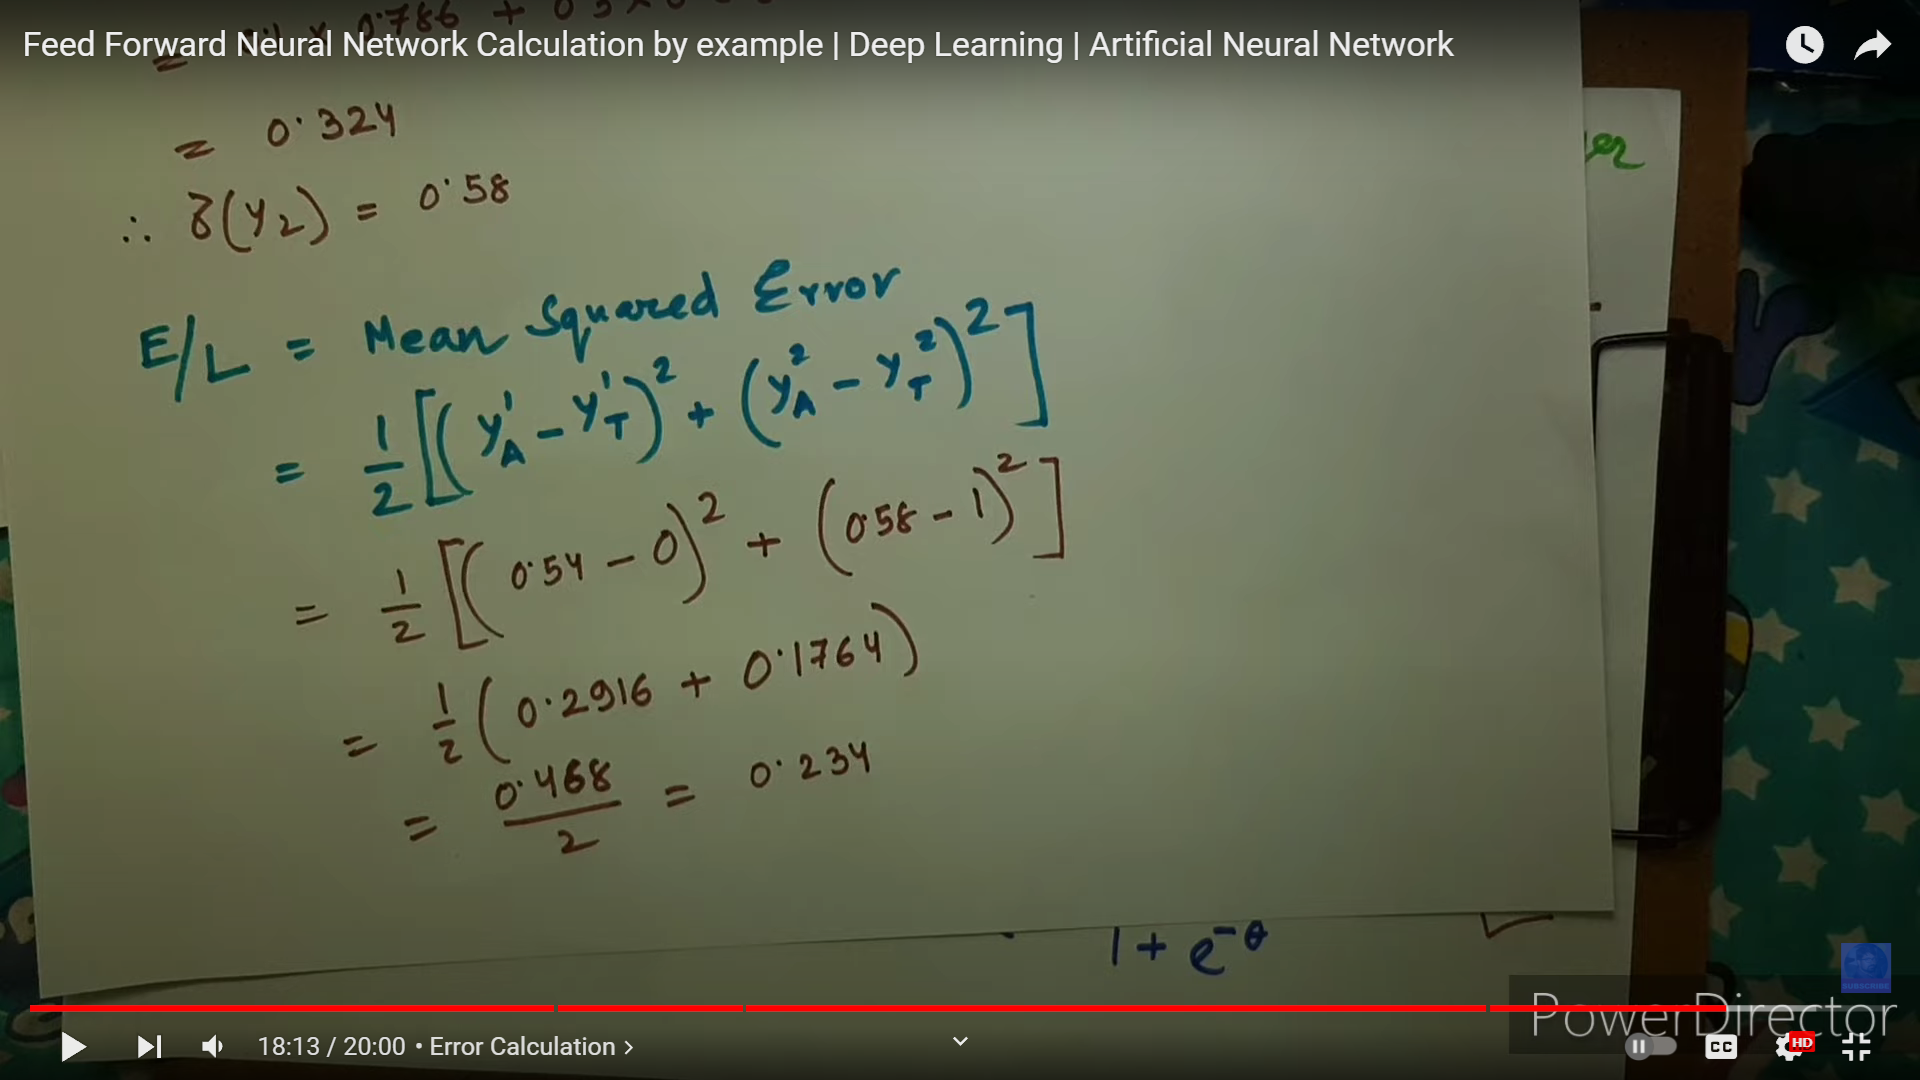 Feed Forward Neural Network Calculation by example | Deep Learning | Artificial Neural Network
= 0.324
∴ δ(y2) = 0.58
E/L = Mean Squared Error
= 1/2 [(y¹A - y¹T)² + (y²A - y²T)²]
= 1/2 [(0.54 - 0)² + (0.58 - 1)²]
= 1/2 (0.2916 + 0.1764)
= 0.468/2 = 0.234
1 + e^-θ
SUBSCRIBE
PowerDirector
18:13 / 20:00 • Error Calculation >
CC
HD